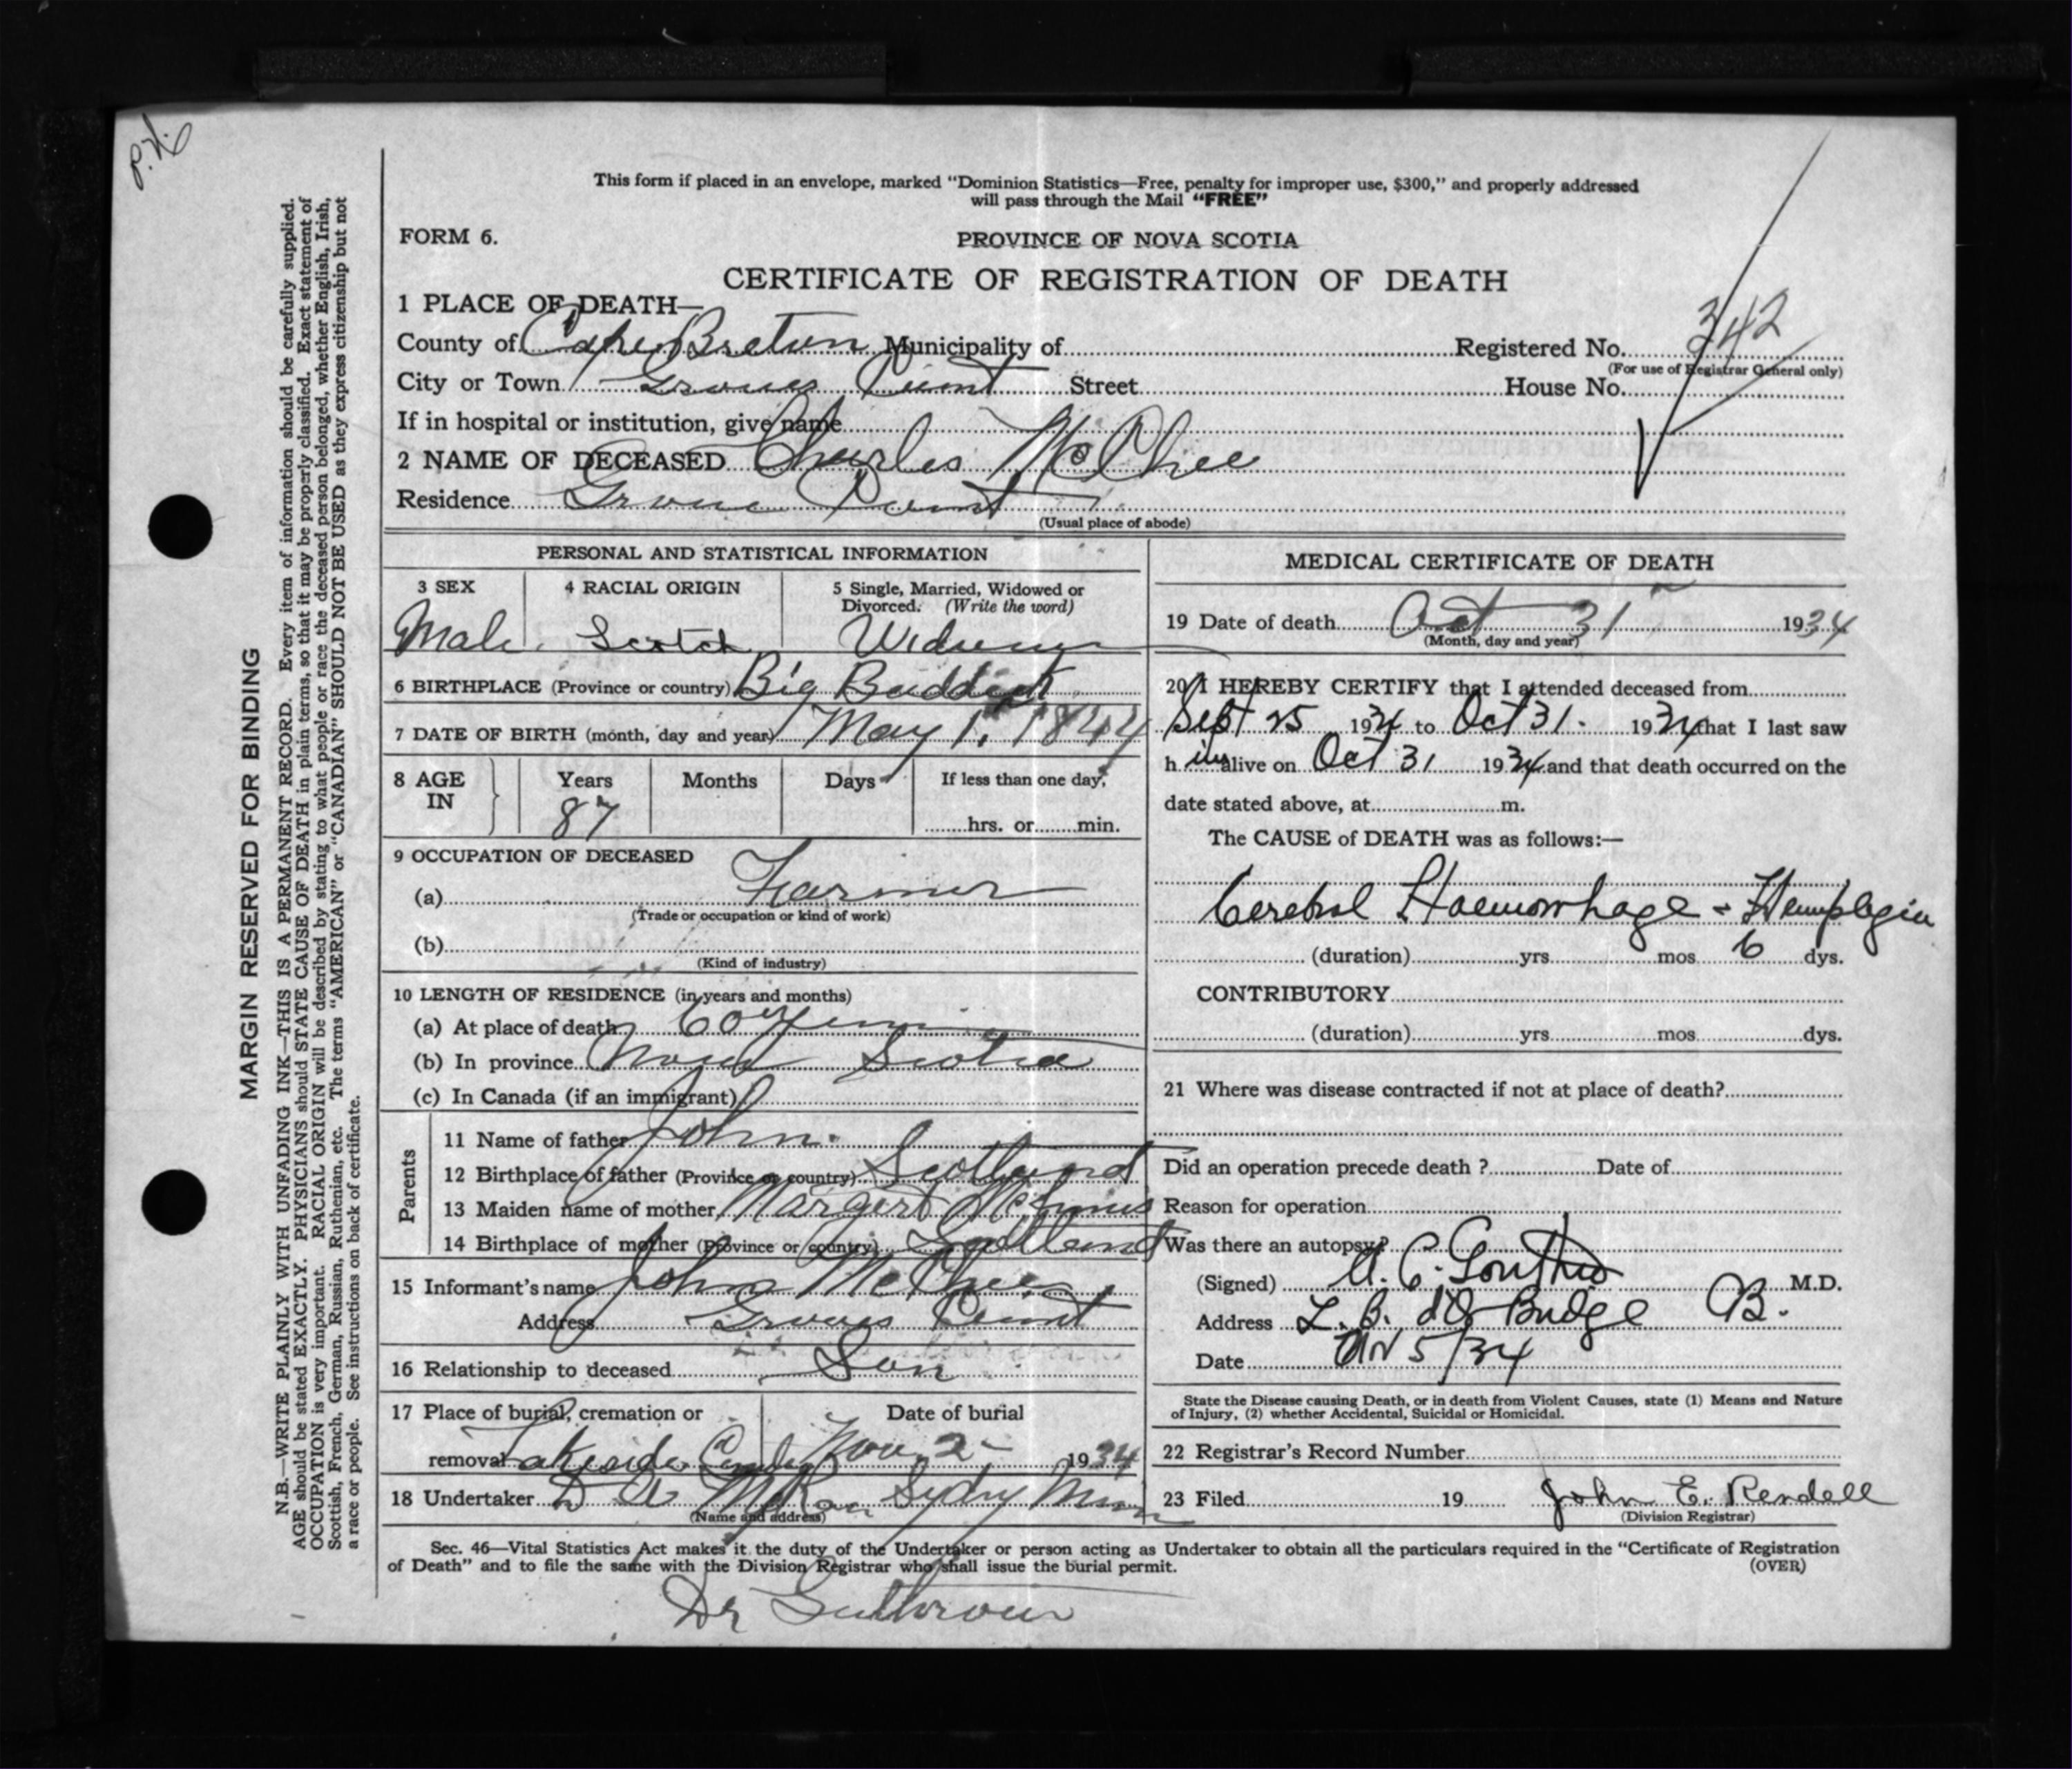 P.H.
This form if placed in an envelope, marked “Dominion Statistics—Free, penalty for improper use, $300,” and properly addressed
will pass through the Mail “FREE”
FORM 6.
PROVINCE OF NOVA SCOTIA
CERTIFICATE OF REGISTRATION OF DEATH
1 PLACE OF DEATH—
County of Cape Breton Municipality of Registered No. 342
(For use of Registrar General only)
City or Town Groves Point Street House No.
If in hospital or institution, give name
2 NAME OF DECEASED Charles McPhee
Residence Groves Point
(Usual place of abode)
PERSONAL AND STATISTICAL INFORMATION
3 SEX 4 RACIAL ORIGIN 5 Single, Married, Widowed or
Divorced. (Write the word)
Male Scotch Widower
6 BIRTHPLACE (Province or country) Big Baddeck
7 DATE OF BIRTH (month, day and year) May 1, 1844
8 AGE IN Years Months Days If less than one day,
87 hrs. or min.
9 OCCUPATION OF DECEASED
(a) Farmer
(Trade or occupation or kind of work)
(b)
(Kind of industry)
10 LENGTH OF RESIDENCE (in years and months)
(a) At place of death 60 years
(b) In province Nova Scotia
(c) In Canada (if an immigrant)
Parents
11 Name of father John
12 Birthplace of father (Province or country) Scotland
13 Maiden name of mother Margert McInnis
14 Birthplace of mother (Province or country) Scotland
15 Informant's name John McPhee
Address Groves Point
16 Relationship to deceased Son
17 Place of burial, cremation or Date of burial
removal Lakeside Nov 2 1934
18 Undertaker D A McRae Sydny Mines
(Name and address)
MEDICAL CERTIFICATE OF DEATH
19 Date of death Oct 31 1934
(Month, day and year)
20 I HEREBY CERTIFY that I attended deceased from
Sept 25 1934 to Oct 31. 1934 that I last saw
h im alive on Oct 31 1934 and that death occurred on the
date stated above, at m.
The CAUSE of DEATH was as follows:—
Cerebral Haemorrhage - Hemiplegia
(duration) yrs. mos 6 dys.
CONTRIBUTORY
(duration) yrs. mos dys.
21 Where was disease contracted if not at place of death?
Did an operation precede death ? Date of
Reason for operation
Was there an autopsy?
(Signed) M.D.
Address L. B. d'Or Bridge C.B.
Date Nov 5/34
State the Disease causing Death, or in death from Violent Causes, state (1) Means and Nature
of Injury, (2) whether Accidental, Suicidal or Homicidal.
22 Registrar's Record Number
23 Filed 19 John E. Rendell
(Division Registrar)
Sec. 46—Vital Statistics Act makes it the duty of the Undertaker or person acting as Undertaker to obtain all the particulars required in the “Certificate of Registration
of Death” and to file the same with the Division Registrar who shall issue the burial permit. (OVER)
Dr
MARGIN RESERVED FOR BINDING
N.B.—WRITE PLAINLY WITH UNFADING INK—THIS IS A PERMANENT RECORD. Every item of information should be carefully supplied.
AGE should be stated EXACTLY. PHYSICIANS should STATE CAUSE OF DEATH in plain terms, so that it may be properly classified. Exact statement of
OCCUPATION is very important. RACIAL ORIGIN will be described by stating to what people or race the deceased person belonged, whether English, Irish,
Scottish, French, German, Russian, Ruthenian, etc. The terms “AMERICAN” or “CANADIAN” SHOULD NOT BE USED as they express citizenship but not
a race or people. See instructions on back of certificate.